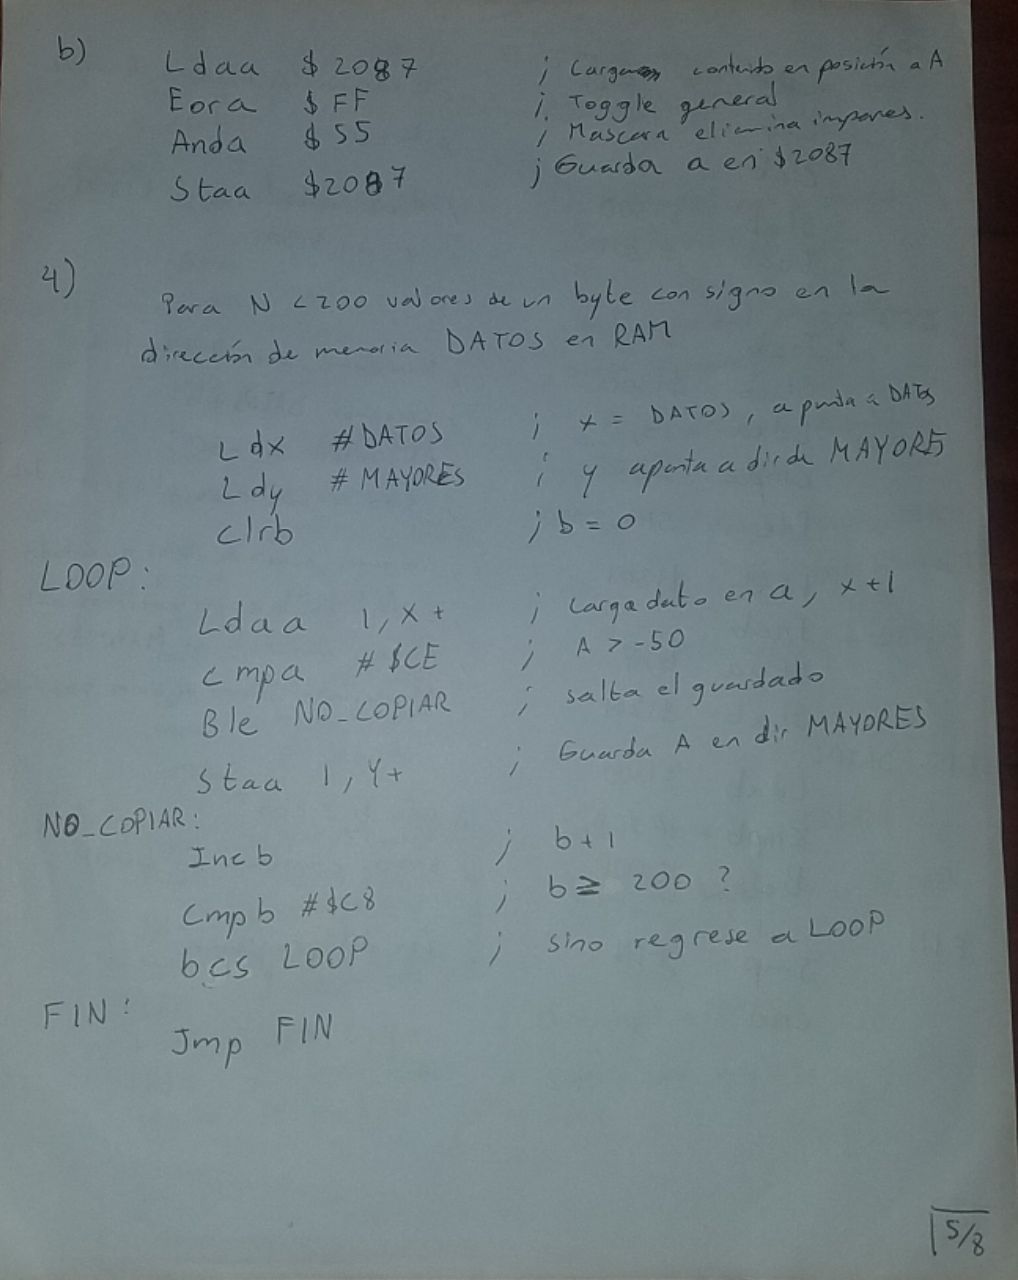 b) Ldaa $2087 ; Carga contenido en posición a A
Eora $FF ; Toggle general
Anda $55 ; Mascara elimina impares.
Staa $2087 ; Guarda a en $2087
4)
Para N < 200 valores de un byte con signo en la
dirección de memoria DATOS en RAM
Ldx #DATOS ; x = DATOS, apunta a DATOS
Ldy #MAYORES ; y apunta a dir de MAYORES
clrb ; b = 0
LOOP:
Ldaa 1,X+ ; carga dato en a, x+1
cmpa #$CE ; A > -50
Ble NO_COPIAR ; salta el guardado
Staa 1,Y+ ; Guarda A en dir MAYORES
NO_COPIAR:
Incb ; b+1
Cmpb #$C8 ; b ≥ 200 ?
bcs LOOP ; sino regrese a LOOP
FIN:
Jmp FIN
5/8